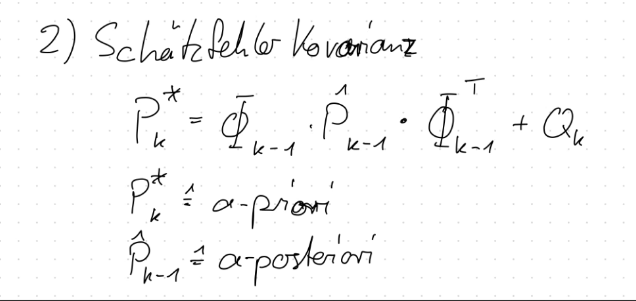 2) Schätzfehler Kovarianz
P*ₖ = Φₖ₋₁ · P̂ₖ₋₁ · Φᵀₖ₋₁ + Qₖ
P*ₖ ≙ a-priori
P̂ₖ₋₁ ≙ a-posteriori